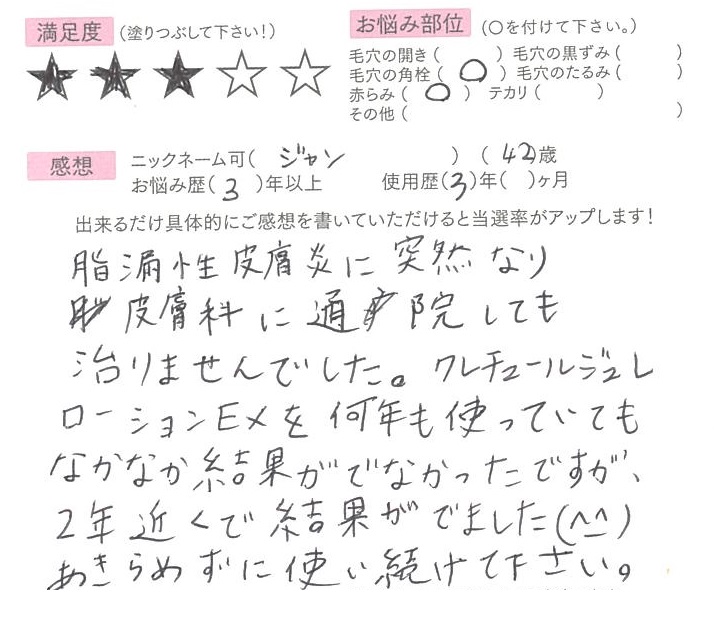 満足度 (塗りつぶして下さい!)
お悩み部位 (〇を付けて下さい。)
毛穴の開き( ) 毛穴の黒ずみ( )
毛穴の角栓(〇) 毛穴のたるみ( )
赤らみ(〇) テカリ( )
その他( )
感想 ニックネーム可( ジャン ) (42歳
お悩み歴(3)年以上 使用歴(3)年( )ヶ月
出来るだけ具体的にご感想を書いていただけると当選率がアップします!
脂漏性皮膚炎に突然なり
皮膚科に通院しても
治りませんでした。クレチュールジュレ
ローションEXを何年も使っていても
なかなか結果がでなかったですが、
2年近くで結果がでました(^^)
あきらめずに使い続けて下さい。